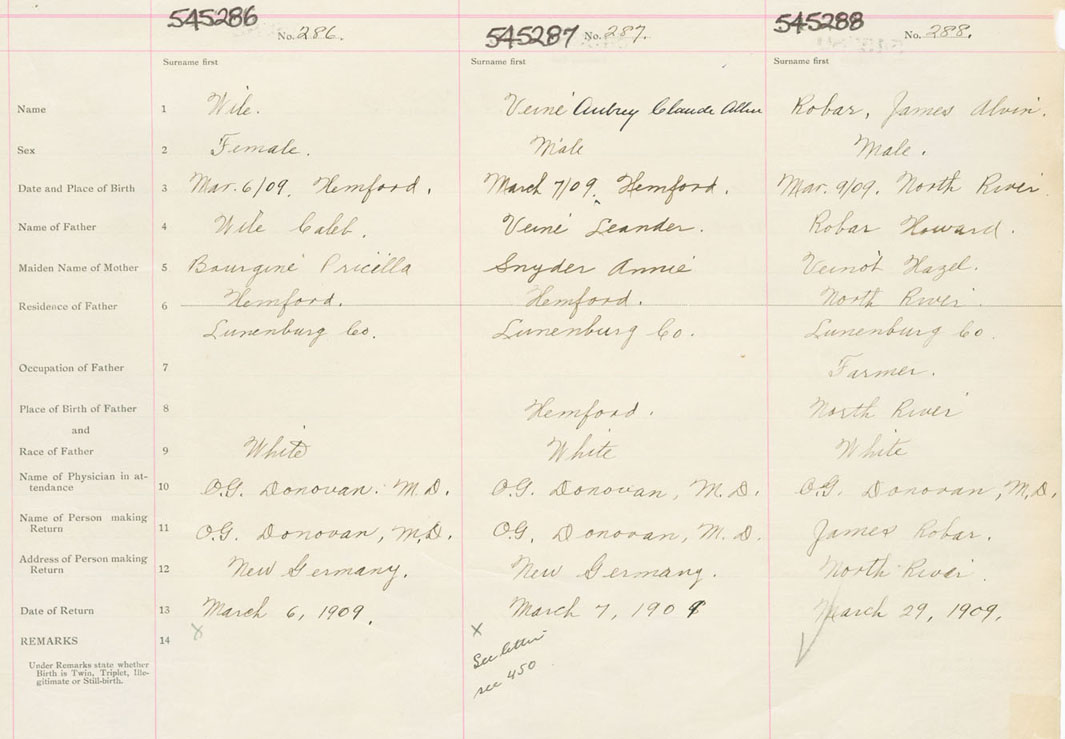 545286 No. 286. 545287 No. 287. 545288 No. 288.
Surname first Surname first Surname first
Name 1 Wile. Veiné Aubrey Claude Robar, James Alvin.
Sex 2 Female. Male Male.
Date and Place of Birth 3 Mar. 6/09. Hemford. March 7/09. Hemford. Mar. 9/09. North River
Name of Father 4 Wile Caleb. Veiné Leander. Robar Howard.
Maiden Name of Mother 5 Pricilla Snyder Annie Veinot Hazel.
Residence of Father 6 Hemford. Hemford. North River.
Lunenburg Co. Lunenburg Co. Lunenburg Co
Occupation of Father 7 Farmer.
Place of Birth of Father 8 Hemford. North River
and
Race of Father 9 White White White
Name of Physician in at-
tendance 10 O.G. Donovan. M.D. O.G. Donovan, M.D. O.G. Donovan, M.D.
Name of Person making
Return 11 O.G. Donovan, M.D. O.G. Donovan, M.D. James Robar.
Address of Person making
Return 12 New Germany. New Germany. North River.
Date of Return 13 March 6, 1909. March 7, 1909 March 29, 1909.
REMARKS 14 x x
See letter
see 450
Under Remarks state whether
Birth is Twin, Triplet, Ille-
gitimate or Still-birth.